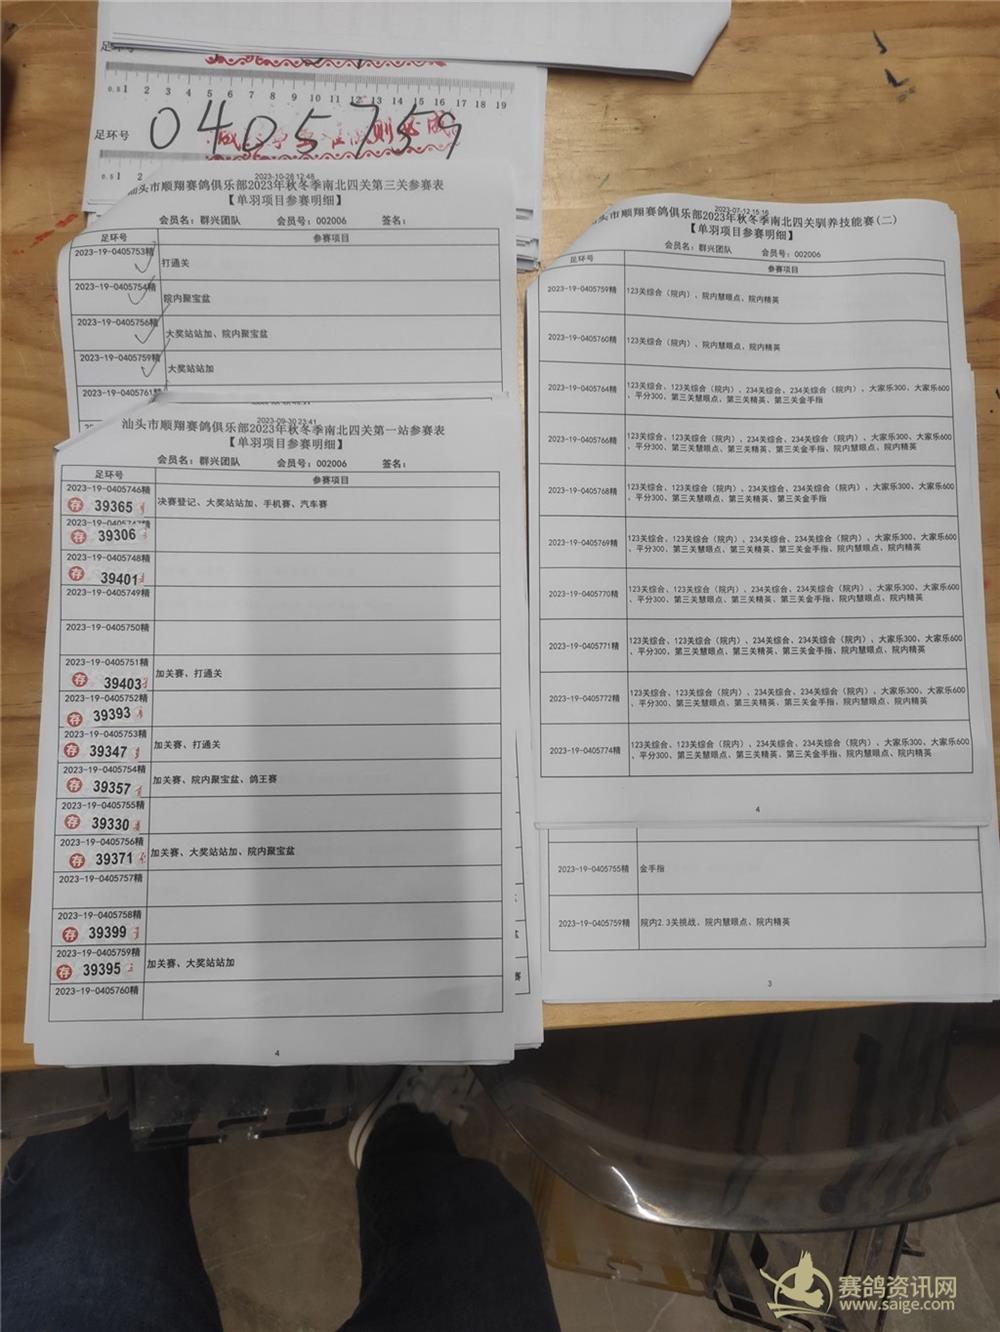 足环号
0.5 1 2 3 4 5 6 7 8 9 10 11 12 13 14 15 16 17 18 19
足环号 0405759
0.5 1 2
2023-10-28 12:48
汕头市顺翔赛鸽俱乐部2023年秋冬季南北四关第三关参赛表
【单羽项目参赛明细】
会员名：群兴团队 会员号：002006 签名：
足环号 参赛项目
2023-19-0405753精 打通关
2023-19-0405754精 院内聚宝盆
2023-19-0405756精 大奖站站加、院内聚宝盆
2023-19-0405759精 大奖站站加
2023-19-0405761精
2023-09-30 23:41
汕头市顺翔赛鸽俱乐部2023年秋冬季南北四关第一站参赛表
【单羽项目参赛明细】
会员名：群兴团队 会员号：002006 签名：
足环号 参赛项目
2023-19-0405746精
存 39365 决赛登记、大奖站站加、手机赛、汽车赛
2023-19-0405747精
存 39306
2023-19-0405748精
存 39401
2023-19-0405749精
2023-19-0405750精
2023-19-0405751精
存 39403 加关赛、打通关
2023-19-0405752精
存 39393
2023-19-0405753精
存 39347 加关赛、打通关
2023-19-0405754精
存 39357 加关赛、院内聚宝盆、鸽王赛
2023-19-0405755精
存 39330
2023-19-0405756精
存 39371 加关赛、大奖站站加、院内聚宝盆
2023-19-0405757精
2023-19-0405758精
存 39399
2023-19-0405759精
存 39395 加关赛、大奖站站加
2023-19-0405760精
4
2023-07-12 15:16
汕头市顺翔赛鸽俱乐部2023年秋冬季南北四关驯养技能赛(二)
【单羽项目参赛明细】
会员名：群兴团队 会员号：002006
足环号 参赛项目
2023-19-0405759精 123关综合（院内）、院内慧眼点、院内精英
2023-19-0405760精 123关综合（院内）、院内慧眼点、院内精英
2023-19-0405764精 123关综合、123关综合（院内）、234关综合、234关综合（院内）、大家乐300、大家乐600
、平分300、第三关慧眼点、第三关精英、第三关金手指
2023-19-0405766精 123关综合、123关综合（院内）、234关综合、234关综合（院内）、大家乐300、大家乐600
、平分300、第三关慧眼点、第三关精英、第三关金手指、院内慧眼点、院内精英
2023-19-0405768精 123关综合、123关综合（院内）、234关综合、234关综合（院内）、大家乐300、大家乐600
、平分300、第三关慧眼点、第三关精英、第三关金手指
2023-19-0405769精 123关综合、123关综合（院内）、234关综合、234关综合（院内）、大家乐300、大家乐600
、平分300、第三关慧眼点、第三关精英、第三关金手指、院内慧眼点、院内精英
2023-19-0405770精 123关综合、123关综合（院内）、234关综合、234关综合（院内）、大家乐300、大家乐600
、平分300、第三关慧眼点、第三关精英、第三关金手指、院内慧眼点、院内精英
2023-19-0405771精 123关综合、123关综合（院内）、234关综合、234关综合（院内）、大家乐300、大家乐600
、平分300、第三关慧眼点、第三关精英、第三关金手指、院内慧眼点、院内精英
2023-19-0405772精 123关综合、123关综合（院内）、234关综合、234关综合（院内）、大家乐300、大家乐600
、平分300、第三关慧眼点、第三关精英、第三关金手指、院内慧眼点、院内精英
2023-19-0405774精 123关综合、123关综合（院内）、234关综合、234关综合（院内）、大家乐300、大家乐600
、平分300、第三关慧眼点、第三关精英、第三关金手指、院内慧眼点、院内精英
4
2023-19-0405755精 金手指
2023-19-0405759精 院内2.3关挑战、院内慧眼点、院内精英
3
赛鸽资讯网
www.saige.com